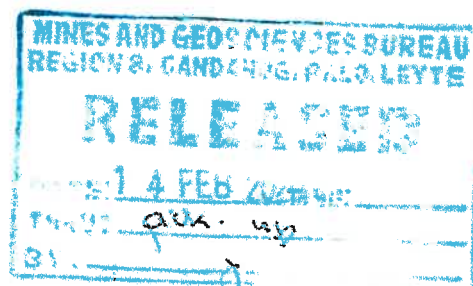 MINES AND GEOSCIENCES BUREAU
REGION 8, CANDAHUG, PALO, LEYTE
RELEASED
14 FEB
THRU:
BY: